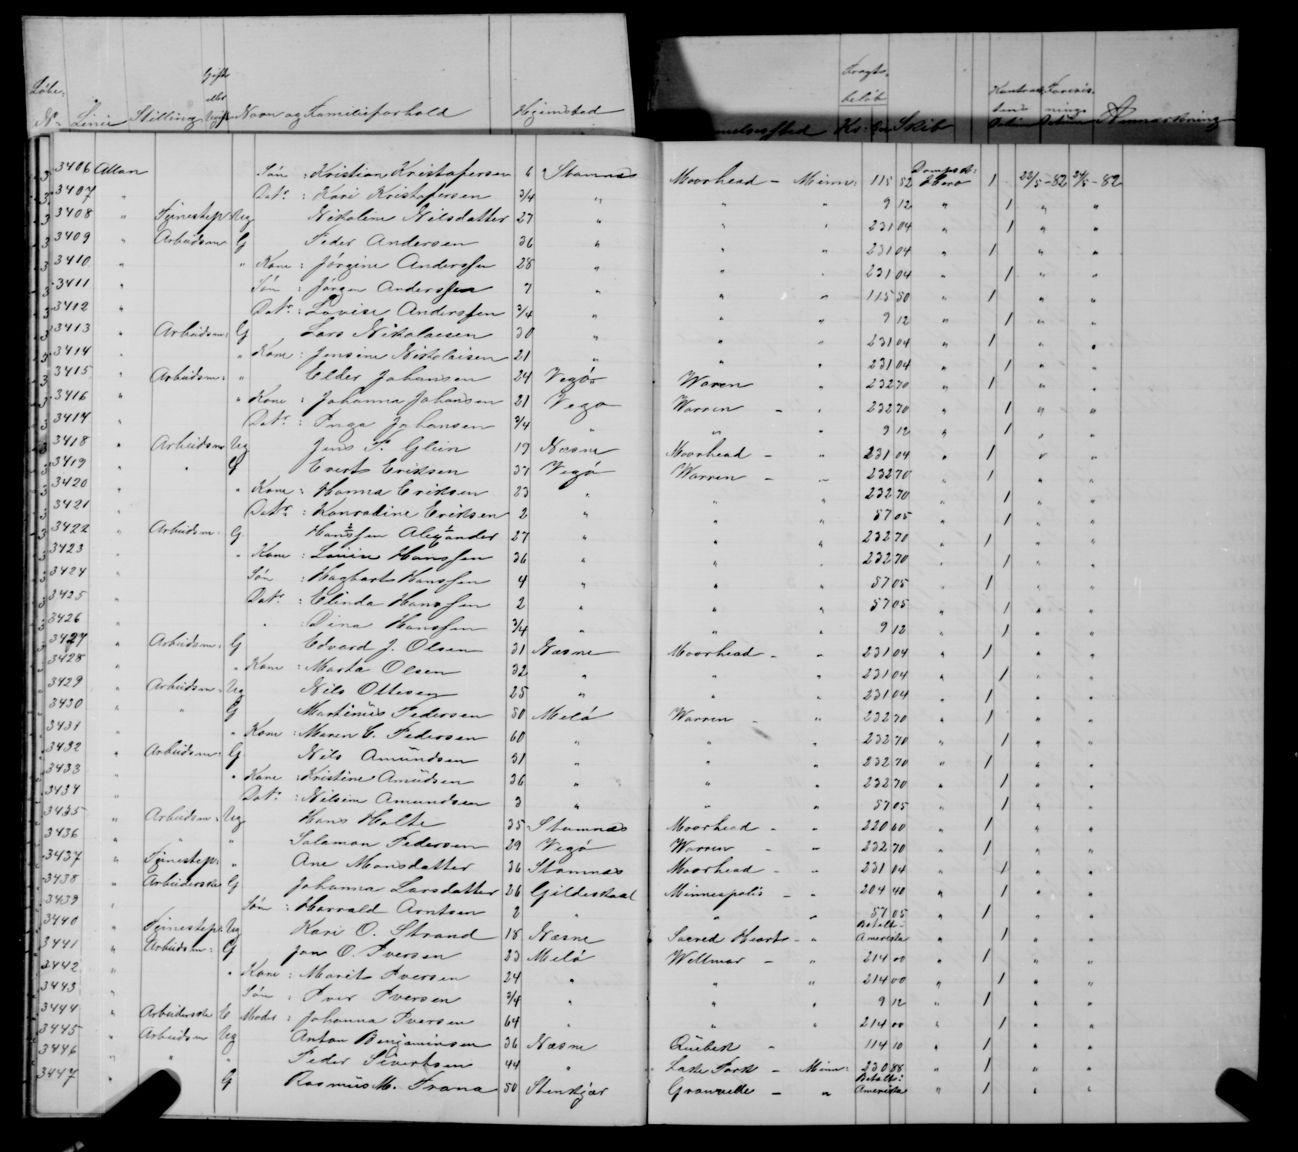 Løbe- N- Linie Stilling Gift eller Ugift Navn og Familieforhold Hjemsted Fragtbeløb Kr. Skib Anmærkning
3406 Allan Søn : Kristian Kristofersen 6 Stamnes Moorhead - Minn: 115 52 Dampsk: Hero 1 23/5-82 24/5-82
3407 " Datr : Kari Kristofersen 3/4 " " " 9 12 " 1 " "
3408 " Tjenestep Ug Nikoline Nilsdatter 27 " " " 231 04 " 1 " "
3409 " Arbeidsm G Peder Andersen 36 " " " 231 04 " 1 " "
3410 " " Kone : Jørgine Anderssen 28 " " " 231 04 " 1 " "
3411 " Søn : Jørgen Anderssen 7 " " " 115 50 " 1 " "
3412 " Datr : Lovise Anderssen 3/4 " " " 9 12 " 1 " "
3413 " Arbeidsm : G Lars Nikolaisen 30 " " " 231 04 " 1 " "
3414 " " Kone : Jensine Nikolaisen 21 " " " 231 04 " 1 " "
3415 " Arbeidsm : " Elder Johansen 24 Vegø Waren " 232 70 " 1 " "
3416 " " Kone : Johanna Johansen 21 Vega Warren - " 232 70 " 1 " "
3417 " Datr : Inga Johansen 3/4 " " " 9 12 " 1 " "
3418 " Arbeidsm Ug Jens P. Glein 19 Næsne Moorhead - " 231 04 " 1 " "
3419 " " G Evert Eriksen 31 Vegø Warren - " 232 70 " 1 " "
3420 " " Kone : Hanna Eriksen 23 " " " 232 70 " 1 " "
3421 " Datr : Konradine Eriksen 2 " " " 57 05 " 1 " "
3422 " Arbeidsm : G Hanssen Alexander 27 " " " 232 70 " 1 " "
3423 " " Kone : Hanssen 36 " " " 232 70 " 1 " "
3424 " Søn : Hagbart Hanssen 4 " " " 57 05 " 1 " "
3425 " Datr : Elinda Hanssen 2 " " " 57 05 " 1 " "
3426 " " : Dina Hanssen 3/4 " " " 9 12 " 1 " "
3427 " Arbeidsm : G Edvard J. Olsen 31 Næsne Moorhead - " 231 04 " 1 " "
3428 " " Kone : Marta Olsen 32 " " " 231 04 " 1 " "
3429 " Arbeidsm : Ug Nils Ottesen 25 " " " 231 04 " 1 " "
3430 " " G Martinus Pedersen 50 Melø Warren - " 232 70 " 1 " "
3431 " " Kone : Maren C. Pedersen 60 " " " 232 70 " 1 " "
3432 " Arbeidsm : G Nils Amundsen 31 " " " 232 70 " 1 " "
3433 " " Kone : Kristine Amudsen 36 " " " 232 70 " 1 " "
3434 " Datr : Nilsine Amundsen 3 " " " 57 05 " 1 " "
3435 " Arbeidsm : Ug Hans Holte 35 Stamnes Moorhead - " 220 60 " 1 " "
3436 " " " Salamon Pedersen 29 Vegø Warren - " 232 70 " 1 " "
3437 " Tjenestep : " Ane Monsdatter 36 Stamnes Moorhead - " 231 04 " 1 " "
3438 " Arbeiderske G Johanna Larsdatter 26 Gildeskaal Minneapolis - " 204 40 " 1 " "
3439 " Søn : Harrald Arntsen 2 " " " 57 05 " 1 " "
3440 " Tjenestep : Ug Kari O. Strand 18 Næsne Sacred Heart - " Betalt- Amerika " 1 " "
3441 " Arbeidsm : G Jon O. Iversen 23 Melø Wellmar - " 214 00 " 1 " "
3442 " " Kone : Marit Iversen 24 " " " 214 00 " 1 " "
3443 " Søn : Iver Iversen 3/4 " " " 9 12 " 1 " "
3444 " Arbeiderske E Moder : Johanna Iversen 64 " " " 214 00 " 1 " "
3445 " Arbeidsm Ug Anton Benjaminsen 36 Næsne Quebek " 114 10 " 1 " "
3446 " " Peder Sivertsen 44 " Lake Park - Minn: 230 88 " 1 " "
3447 " G Rasmus M. Frana 50 Stenkjær Granville - " Betalt: Amerika " 1 " "